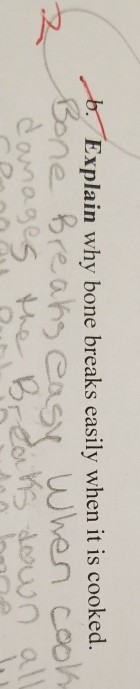 2
b. Explain why bone breaks easily when it is cooked.
Bone Breaks easy when cook
damages the Breaks down all